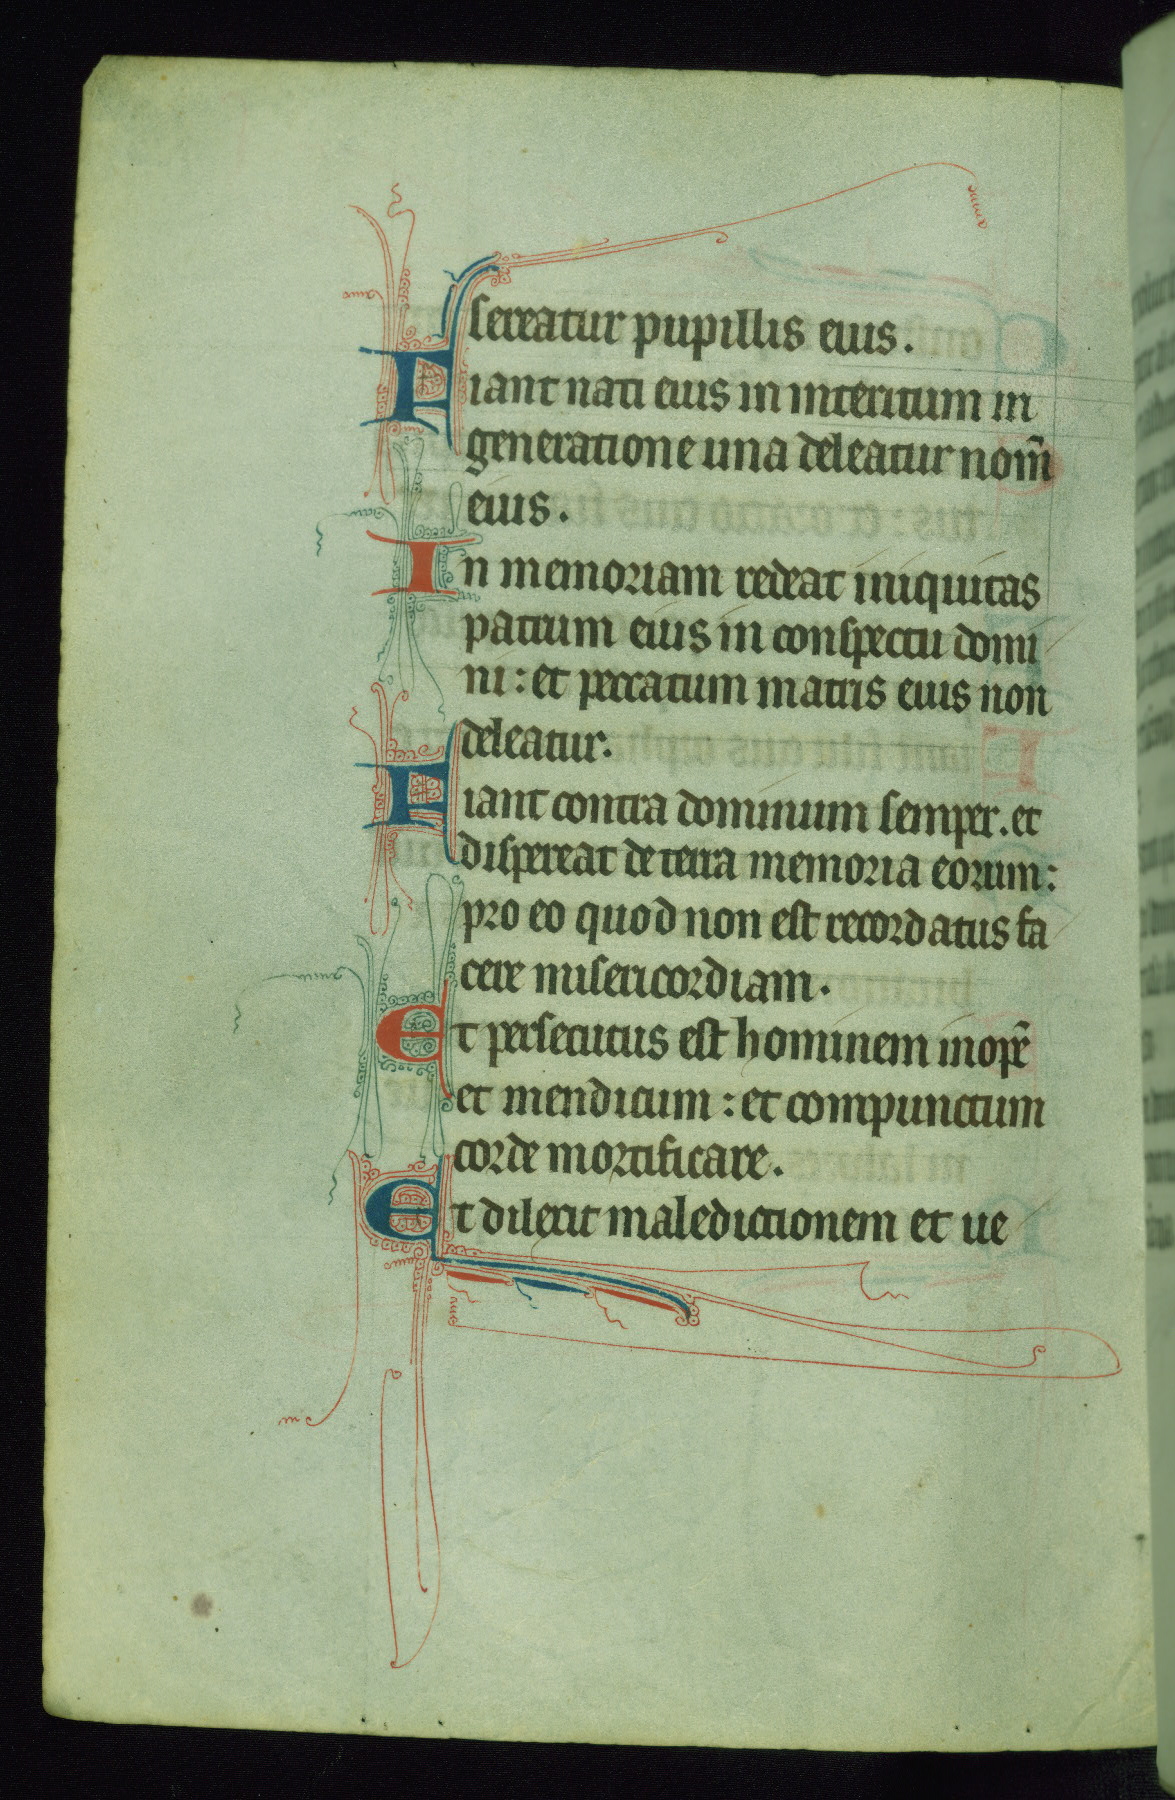 sereatur pupillis eius.
Fiant nati eius in interitum in
generatione una deleatur nom̄
eius.
In memoriam redeat iniquitas
patrum eius in conspectu domi
ni: et peccatum matris eius non
deleatur.
Fiant contra dominum semper. et
dispereat de terra memoria eorum:
pro eo quod non est recordatus fa
cere misericordiam.
Et persecutus est hominem inopē
et mendicum: et compunctum
corde mortificare.
Et dilexit maledictionem et ue